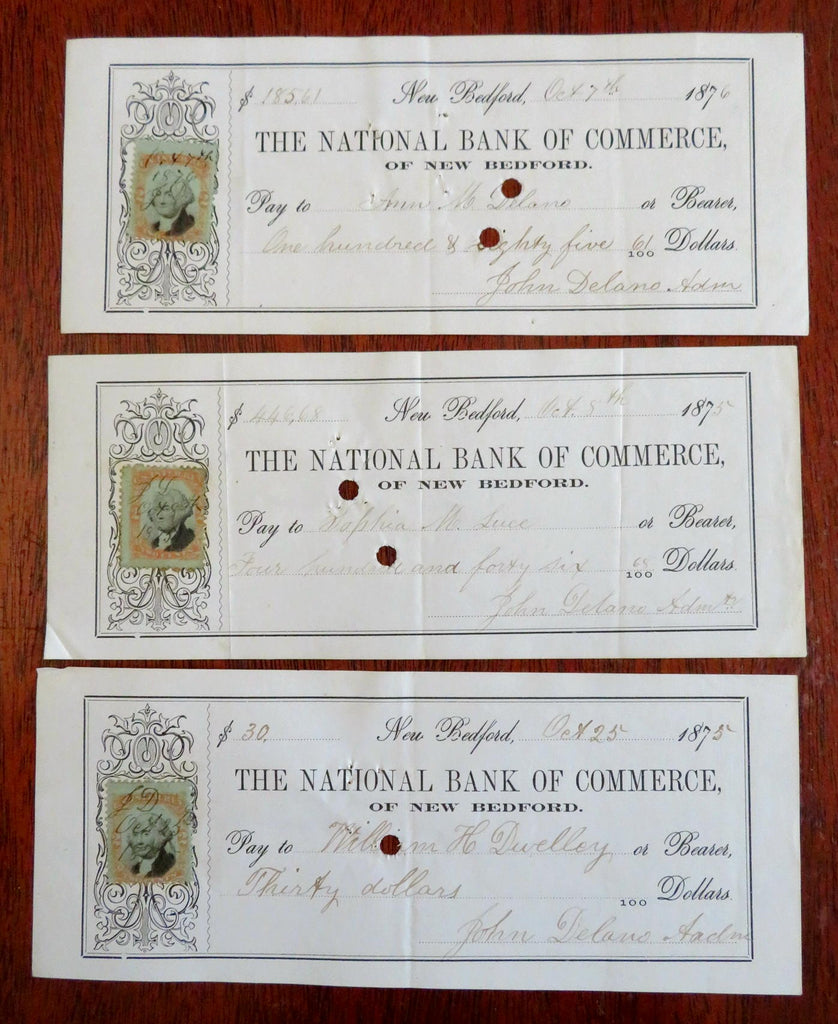 $ 185.61 New Bedford, Oct 7th 1876
THE NATIONAL BANK OF COMMERCE,
OF NEW BEDFORD.
Pay to Ann M. Delano or Bearer,
One hundred & eighty five 61/100 Dollars.
John Delano Adm
$ 446,68 New Bedford, Oct. 5th 1875
THE NATIONAL BANK OF COMMERCE,
OF NEW BEDFORD.
Pay to Sophia M. Luce or Bearer,
Four hundred and forty six 68/100 Dollars.
John Delano Adm
$ 30, New Bedford, Oct 25 1875
THE NATIONAL BANK OF COMMERCE,
OF NEW BEDFORD.
Pay to William H Dwelley or Bearer,
Thirty dollars 100 Dollars.
John Delano Aadm